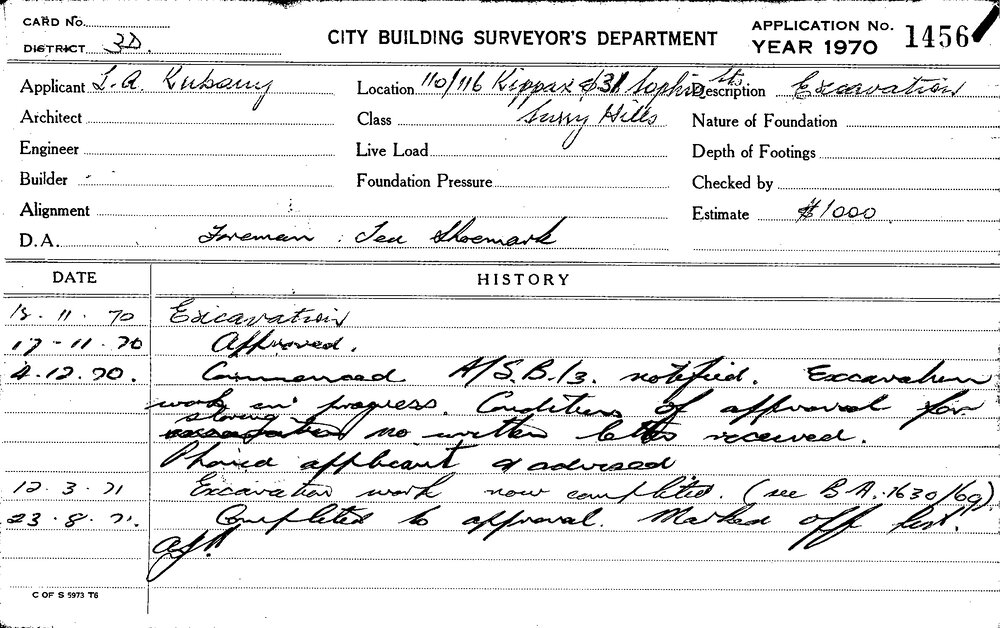 CARD No.
DISTRICT 3D.
CITY BUILDING SURVEYOR'S DEPARTMENT
APPLICATION No. 1456
YEAR 1970
Applicant L.A. Kubany
Location 110/116 Kippax & 31 Sophia Sts
Surry Hills
Description Excavation
Architect
Class
Nature of Foundation
Engineer
Live Load
Depth of Footings
Builder
Foundation Pressure
Checked by
Alignment
Estimate $1000
D.A. Foreman : Ted Shoemark
DATE HISTORY
13.11.70 Excavation
17-11-70 Approved.
4.12.70. Commenced. A/S.B./3. notified. Excavation
work in progress. Conditions of approval for
shoring no written letter received.
Phoned applicant & advised
12.3.71 Excavation work now completed. (see B.A. 1630/69)
23.8.71. Completed to approval. Marked off list.
C OF S 5973 T6